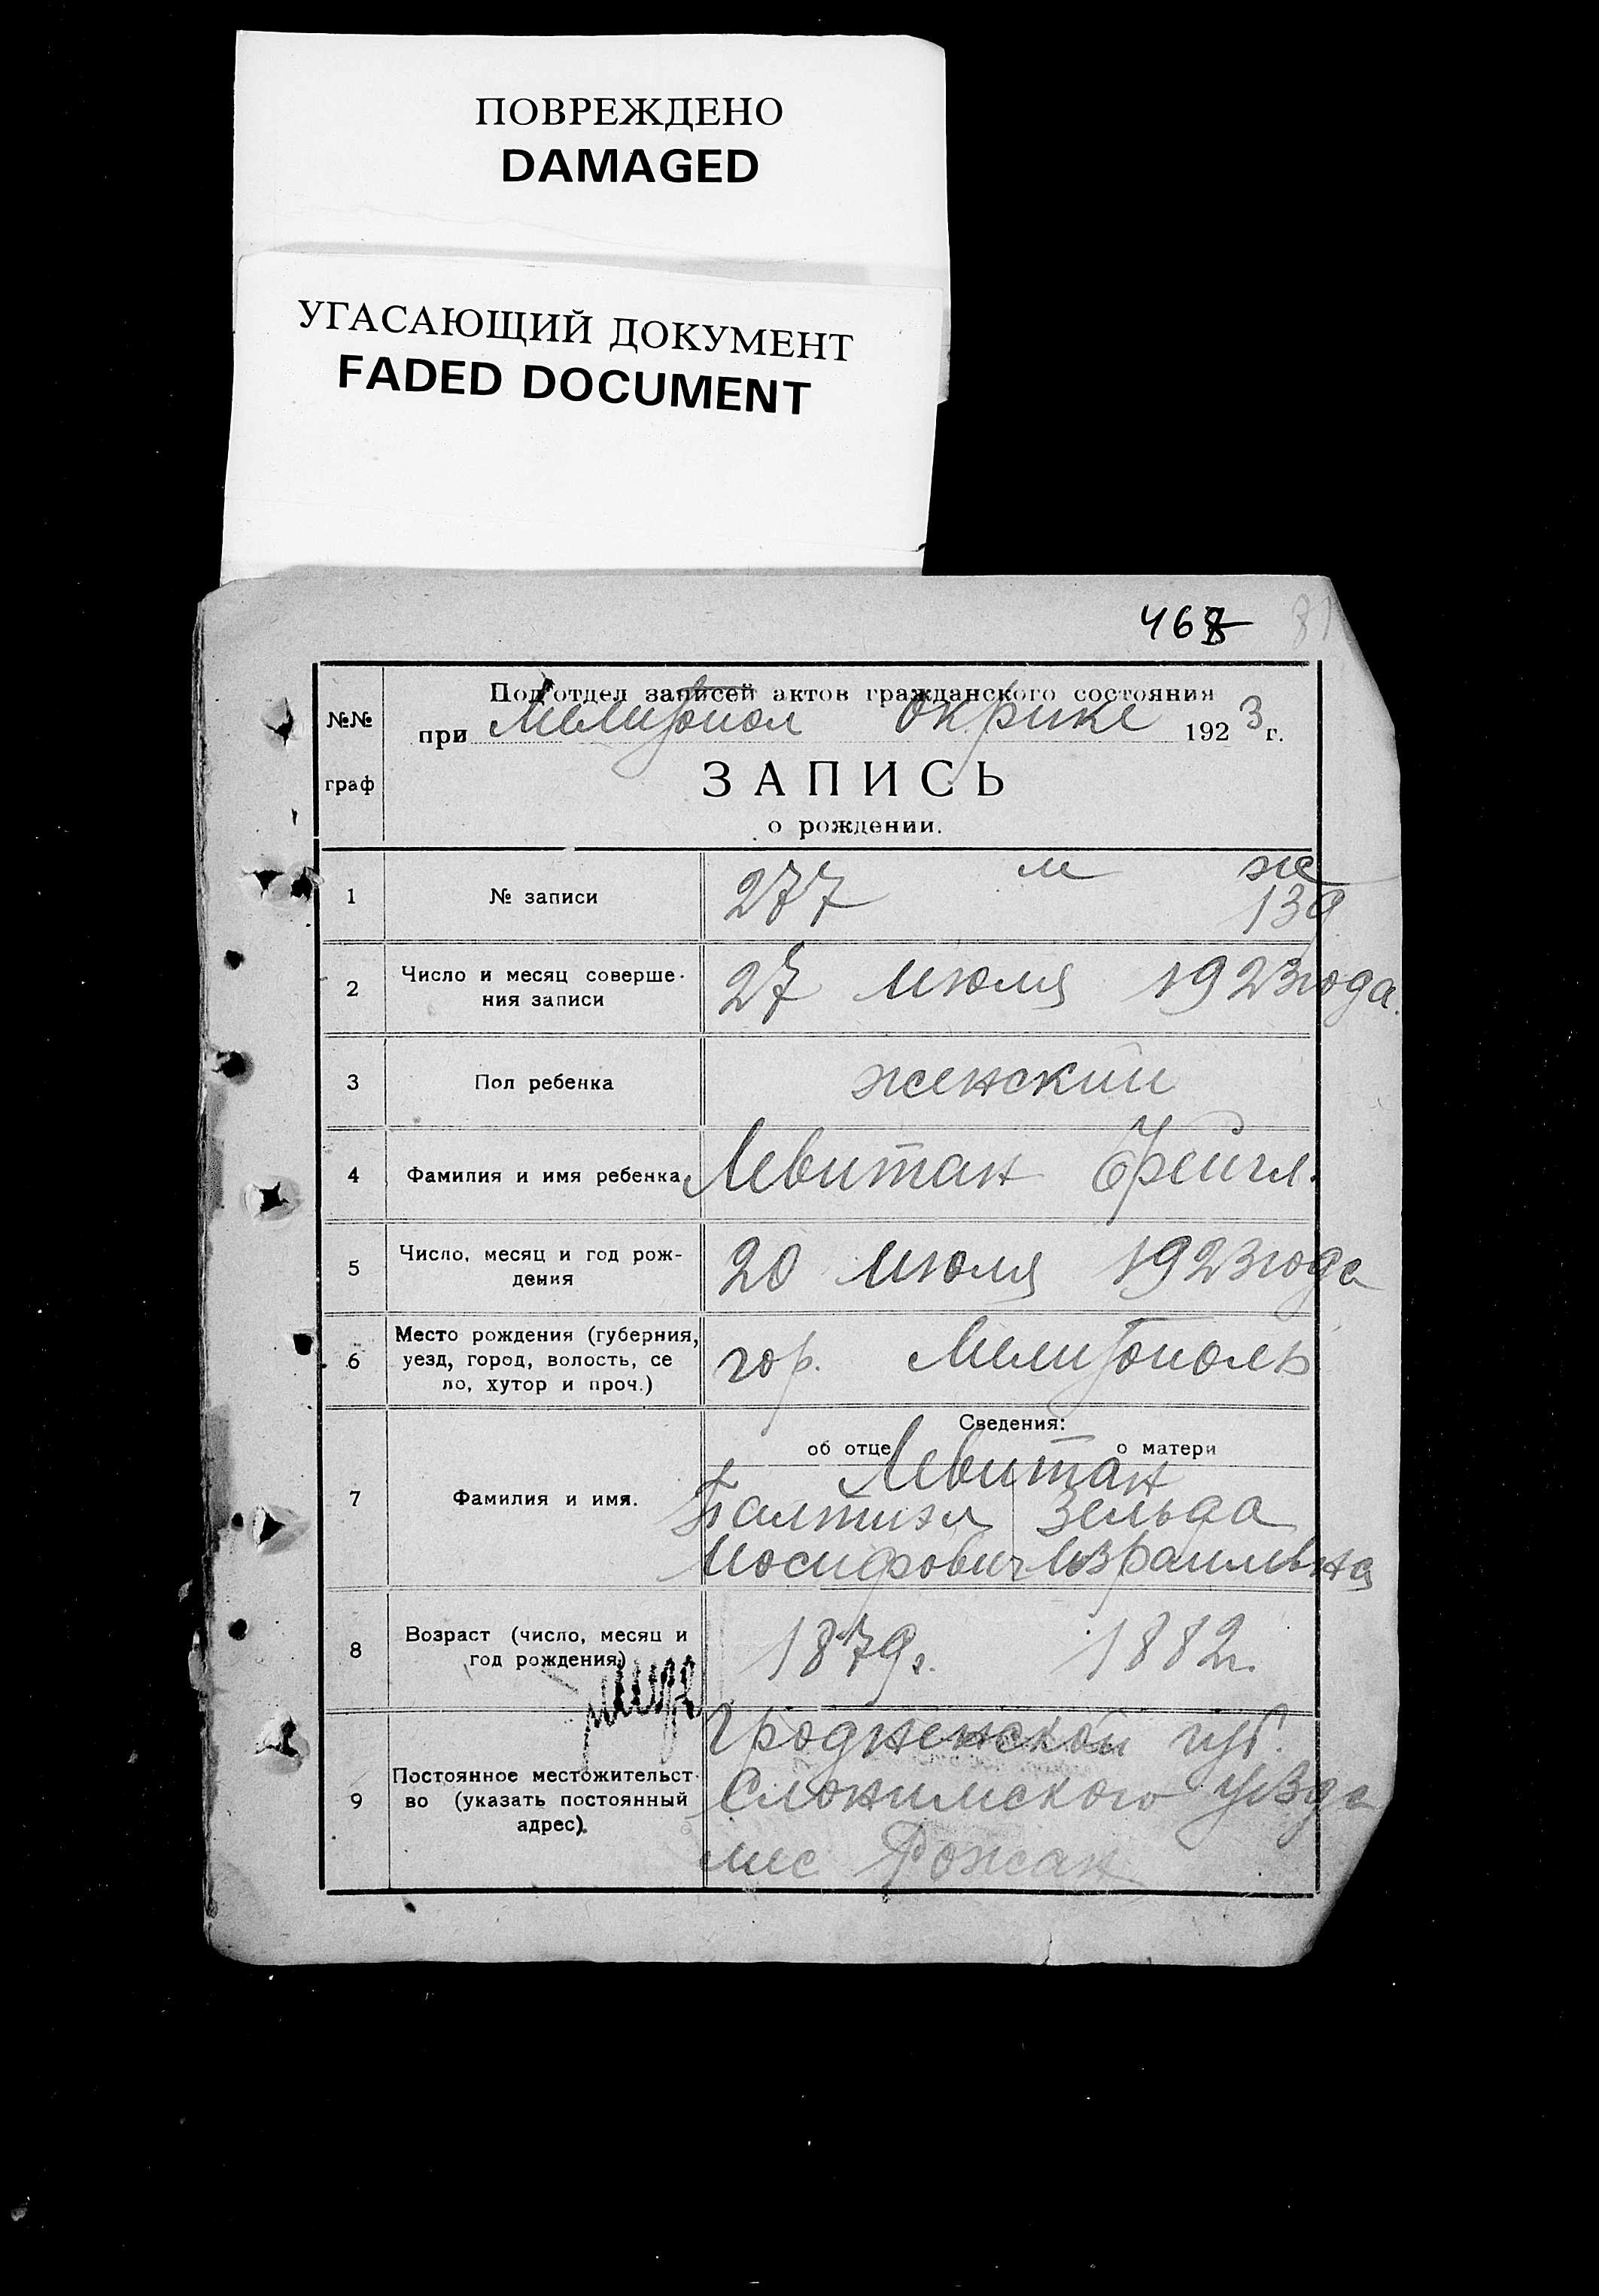 ПОВРЕЖДЕНО
DAMAGED
УГАСАЮЩИЙ ДОКУМЕНТ
FADED DOCUMENT
468 81
Подотдел записей актов гражданского состояния
№№ при Мелитопол Окрике 1923 г.
граф
ЗАПИСЬ
о рождении.
м же
1 № записи 277 139
2 Число и месяц соверше-
ния записи
27 июля 1923 года.
3 Пол ребенка женский
4 Фамилия и имя ребенка Левитан Фейгл.
5 Число, месяц и год рож-
дения
20 июля 1923 года
6 Место рождения (губерния,
уезд, город, волость, се
ло, хутор и проч.)
гор. Мелитополь
Сведения:
об отце о матери
7 Фамилия и имя. Левитан
Палтиэл Зельда
Иосифович Израильна
8 Возраст (число, месяц и
год рождения)
1879г. 1882г.
9 Постоянное местожительст-
во (указать постоянный
адрес).
Гродненской губ.
Слонимского уезда
мес Рожан